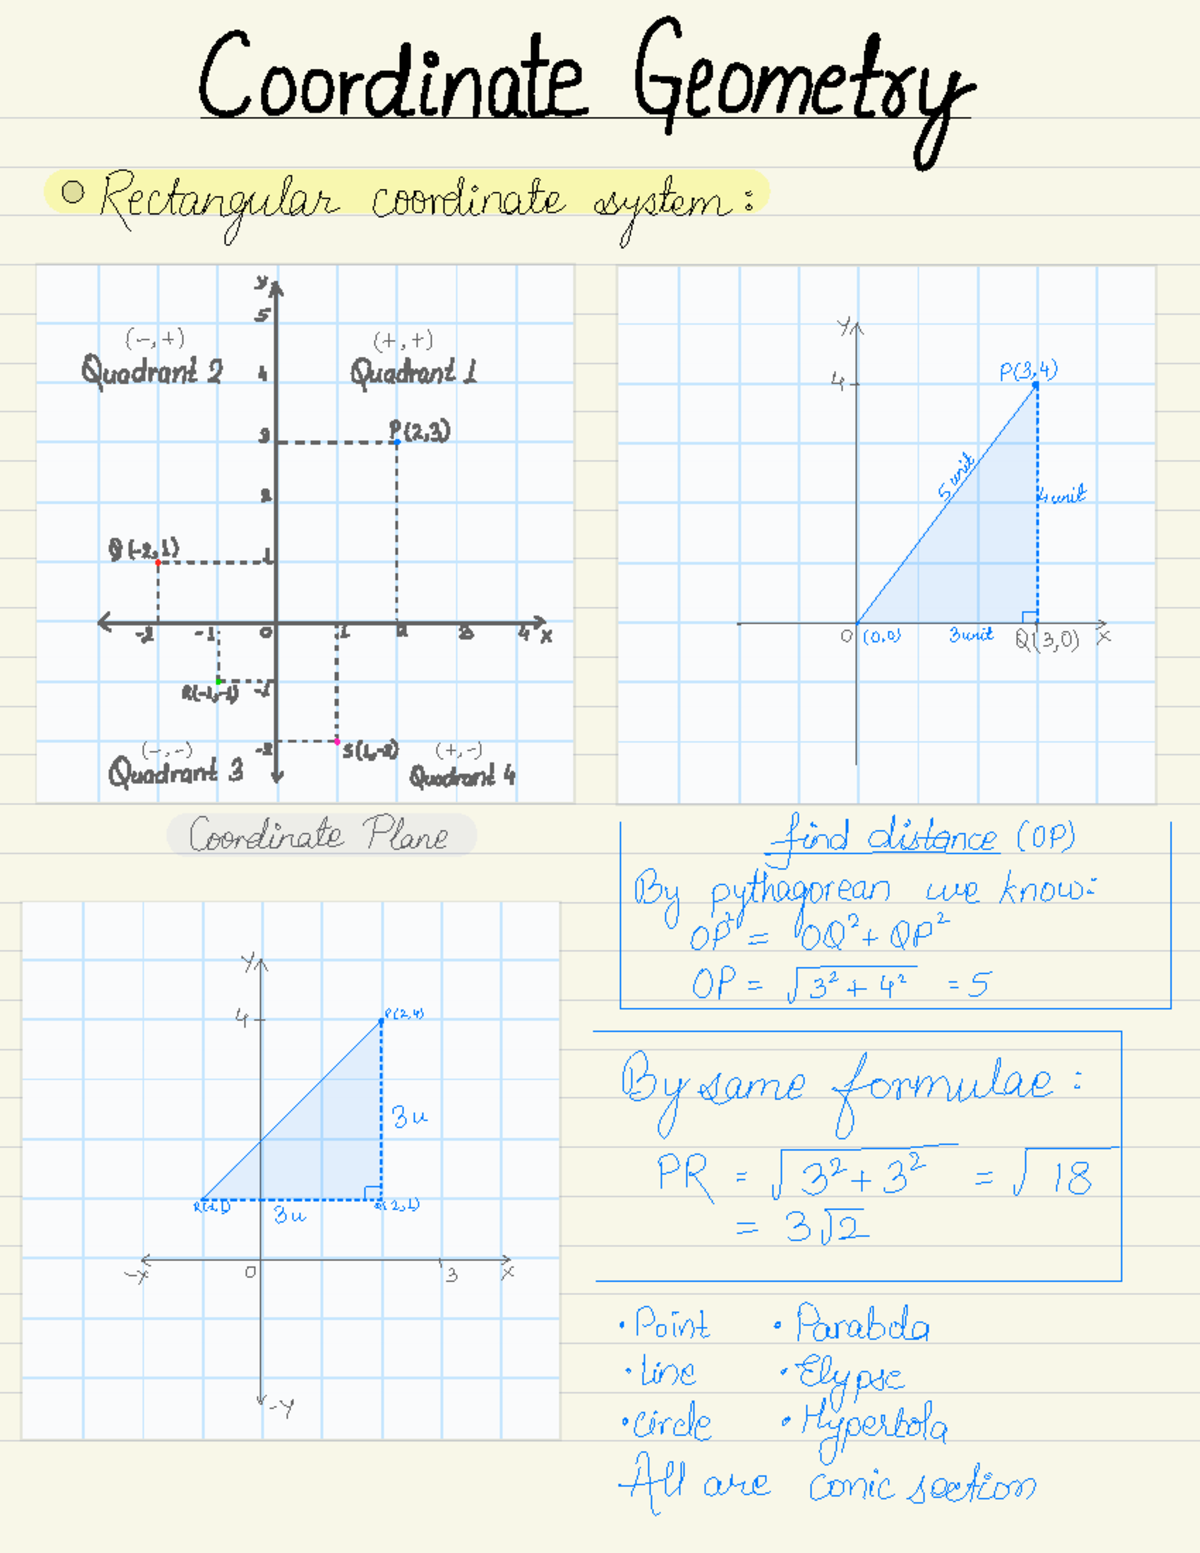 Coordinate Geometry
Rectangular coordinate system:
y
5
(-,+) (+,+)
Quadrant 2 4 Quadrant 1
3 P(2,3)
2
Q(-2,1) 1
-2 -1 0 1 2 3 4 x
R(-1,-1) -1
-2 S(1,-2)
(-,-) (+,-)
Quadrant 3 Quadrant 4
Coordinate Plane
Y
P(3,4)
4
5 unit
4unit
O (0,0) 3unit Q(3,0) X
find distance (OP)
By pythagorean we know:
OP² = OQ² + QP²
OP = √3² + 4² = 5
Y
4 P(2,4)
3u
3u
-X O 3 X
-Y
By same formulae:
PR = √3² + 3² = √18
= 3√2
• Point • Parabola
• Line • Elypse
• Circle • Hyperbola
All are conic section